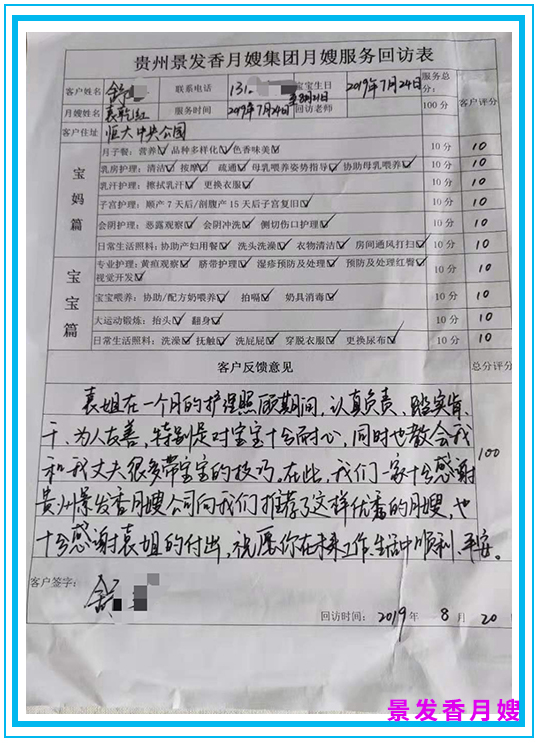 贵州景发香月嫂集团月嫂服务回访表
客户姓名 舒 联系电话 131 宝宝生日 2019年7月24日 服务总分: 客户评分
月嫂姓名 袁乾红 服务时间 2019年7月24日至8月21日 回访老师 100分
客户住址 恒大中央公园
宝妈篇
月子餐:营养☑ 品种多样化☑ 色香味美☑ 10分 10
乳房护理:清洁☑ 按摩☑ 疏通☑ 母乳喂养姿势指导☑ 协助母乳喂养☑ 10分 10
乳汗护理:擦拭乳汗☑ 更换衣服☑ 10分 10
子宫护理:顺产7天后/剖腹产15天后子宫复旧☑ 10分 10
会阴护理:恶露观察☑ 会阴冲洗☑ 侧切伤口护理☑ 10分 10
日常生活照料:协助产妇用餐☑ 洗头洗澡☑ 衣物清洁☑ 房间通风打扫☑ 10分 10
宝宝篇
专业护理:黄疸观察☑ 脐带护理☑ 湿疹预防及处理☑ 预防及处理红臀☑
视觉开发☑ 10分 10
宝宝喂养:协助/配方奶喂养☑ 拍嗝☑ 奶具消毒☑ 10分 10
大运动锻炼:抬头☑ 翻身☑ 10分 10
日常生活照料:洗澡☑ 抚触☑ 洗屁屁☑ 穿脱衣服☑ 更换尿布☑ 10分 10
客户反馈意见 总分评分
袁姐在一个月的护理照顾期间,认真负责、踏实肯
干、为人友善,特别是对宝宝十分耐心,同时也教会我
和我丈夫很多带宝宝的技巧。在此,我们一家十分感谢 100
贵州景发香月嫂公司向我们推荐了这样优秀的月嫂,也
十分感谢袁姐的付出,祝愿你在未来工作、生活中顺利、平安。
客户签字: 舒
回访时间: 2019 年 8 月 20
景发香月嫂